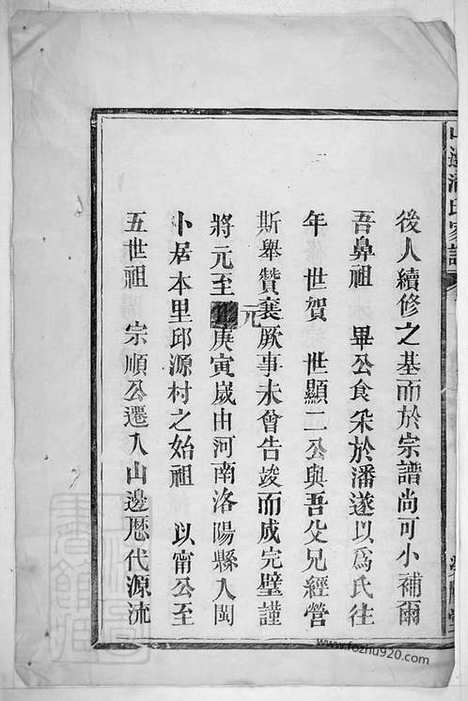 後人續修之基而於宗譜尚可小補爾
吾鼻祖 畢公食采於潘遂以為氏往
年 世賀 世顯二公與吾父兄經營
斯舉贊襄厥事未曾告竣而成完璧謹
將元至元庚寅歲由河南洛陽縣入閩
卜居本里邱源村之始祖 以甯公至
五世祖 宗順公遷入山邊歷代源流
山邊潘氏家譜
www.fozhu920.com